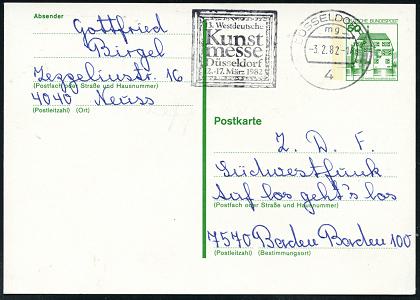 Absender
Gottfried
Birgel
Zeppelinstr. 16
(Postfach oder Straße und Hausnummer)
4040 Neuss
(Postleitzahl) (Ort)
3. Westdeutsche
Kunst
messe
Düsseldorf
2.-17. März 1982
DÜSSELDORF
mg
-3.2.82
4
DEUTSCHE BUNDESPOST
Postkarte
Z. D. F.
Südwestfunk
Auf los geht's los
(Postfach oder Straße und Hausnummer)
7570 Baden Baden 100
(Postleitzahl) (Bestimmungsort)